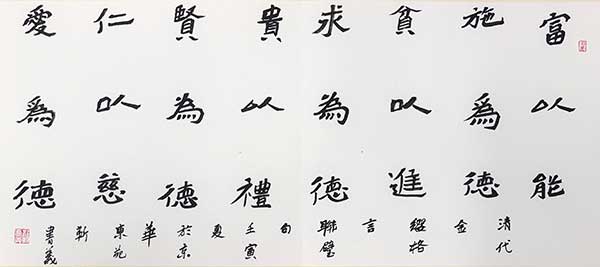 富以能
施爲德
貧以進
求為德
貴以禮
賢為德
仁以慈
愛爲德
清代
金
纓格
言
聯璧
句
壬寅
夏
於京
華
東苑
靳
書義